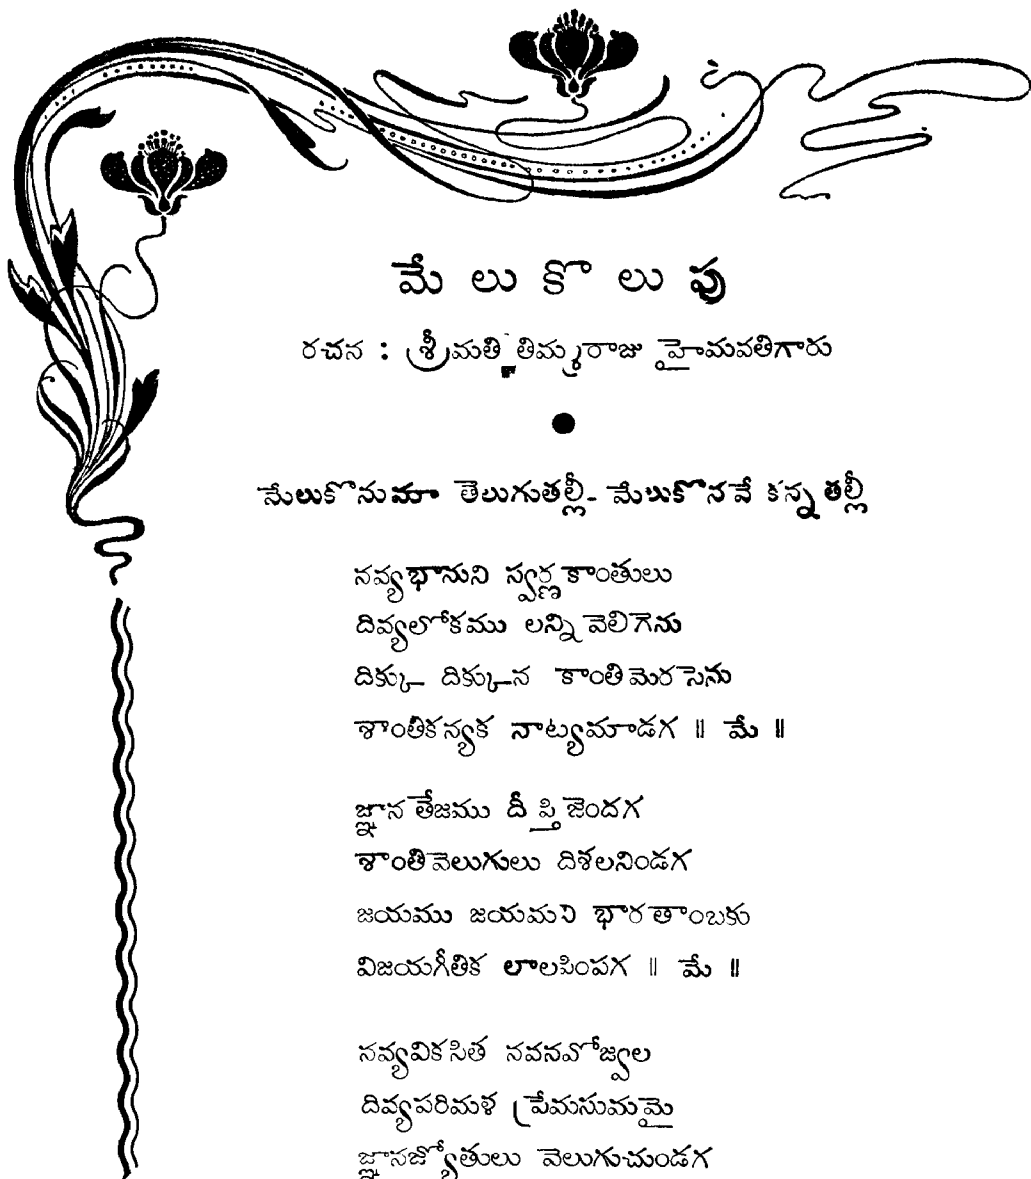 మేలుకొలుపు
రచన : శ్రీమతి తిమ్మరాజు హైమవతిగారు
మేలుకొనుమా తెలుగుతల్లీ- మేలుకొనవే కన్నతల్లీ
నవ్యభానుని స్వర్ణకాంతులు
దివ్యలోకము లన్ని వెలిగెను
దిక్కు దిక్కున కాంతి మెరసెను
శాంతికన్యక నాట్యమాడగ ॥ మే ॥
జ్ఞాన తేజము దీప్తిజెందగ
శాంతివెలుగులు దిశలనిండగ
జయము జయమని భారతాంబకు
విజయగీతిక లాలపింపగ ॥ మే ॥
నవ్యవికసిత నవనవోజ్వల
దివ్యపరిమళ ప్రేమసుమమై
జ్ఞానజ్యోతులు వెలుగుచుండగ